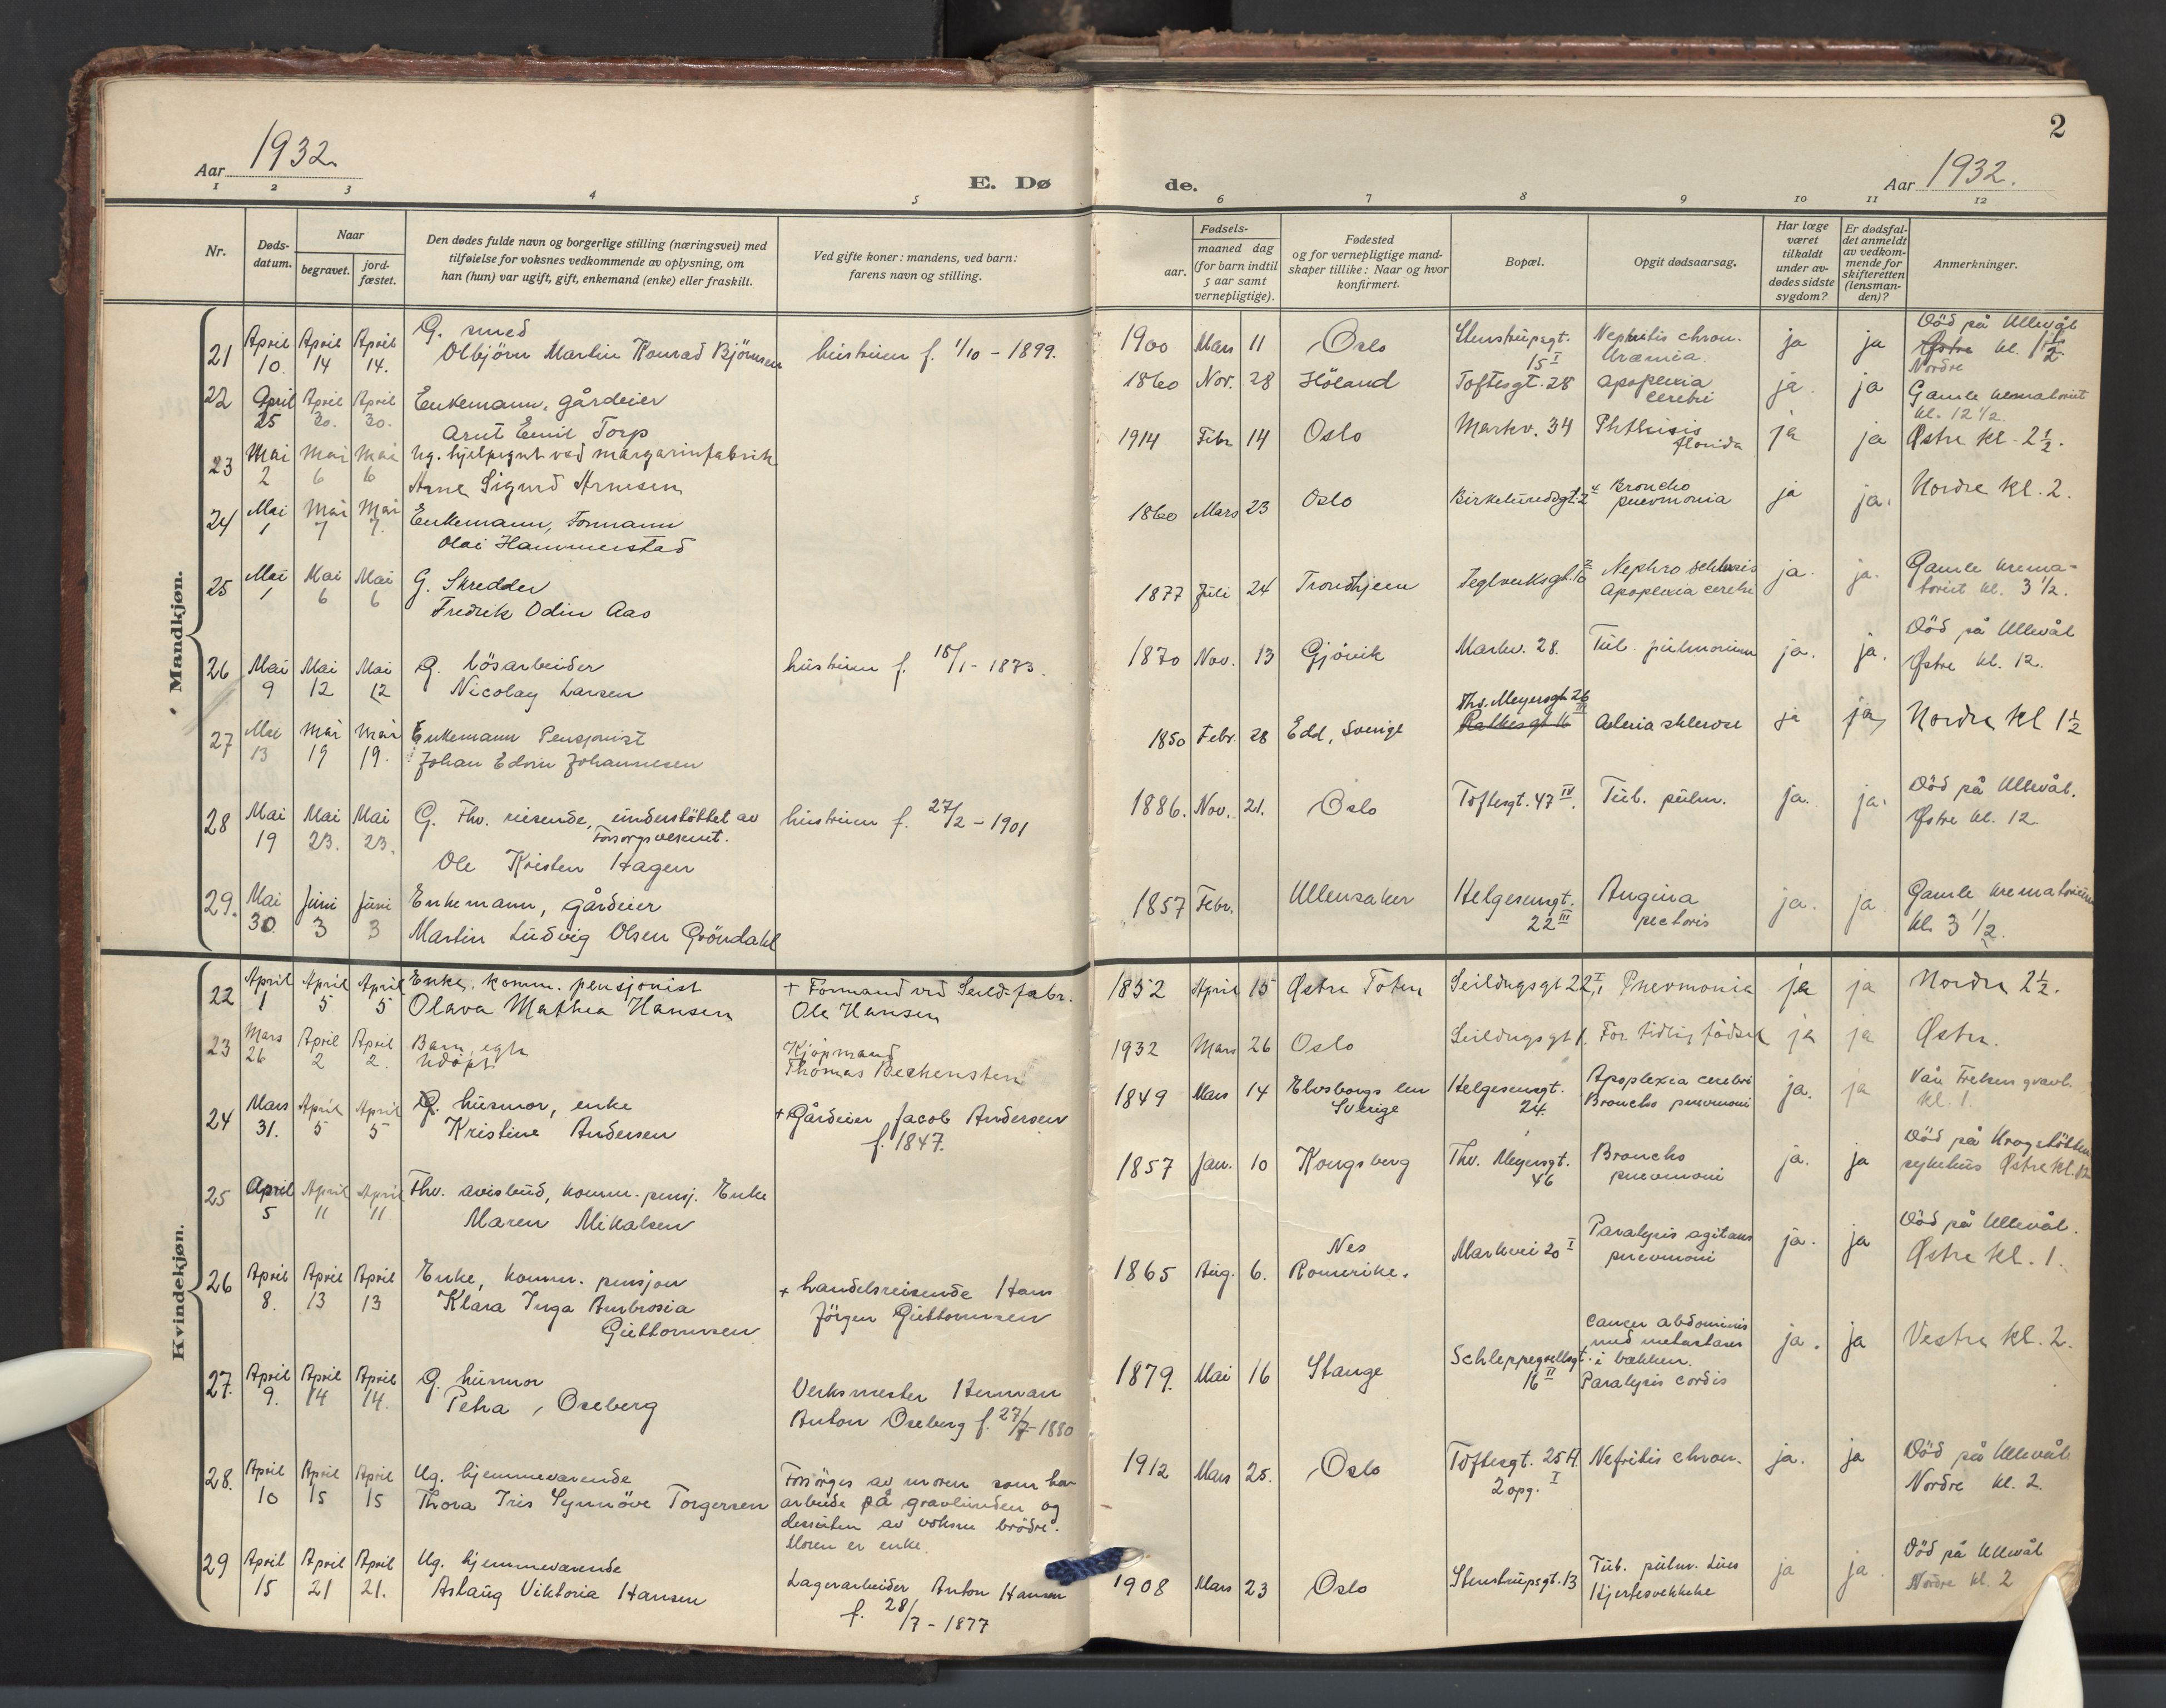 Aar 1932.
E. Dø
1 2 3 4 5
Nr.
Døds-datum.
Naar
begravet.
jord-fæstet.
Den dødes fulde navn og borgerlige stilling (næringsvei) med
tilføielse for voksnes vedkommende av oplysning, om
han (hun) var ugift, gift, enkemand (enke) eller fraskilt.
Ved gifte koner: mandens, ved barn:
farens navn og stilling.
Mandkjøn.
21 April 10. April 14 April 14. G. smed
Olbjörn Martin Konrad Björnsen hustruen f. 1/10 - 1899.
22 April 25 April 30. April 30. Enkemann, gårdeier
Arnt Emil Torp
23 Mai 2 Mai 6 Mai 6 Ug. hjelpegut ved margarinfabrik
Arne Sigurd Arnesen
24 Mai 1 Mai 7 Mai 7. Enkemann, Formann
Olai Hammerstad
25 Mai 1 Mai 6 Mai 6 G. Skredder
Fredrik Odin Aas
26 Mai 9 Mai 12 Mai 12 G. lösarbeider
Nicolay Larsen hustruen f. 15/1 - 1873.
27 Mai 13 Mai 19 Mai 19. Enkemann Pensjonist
Johan Edvin Johannesen
28 Mai 19 Mai 23. Mai 23. G. Fhv. reisende, understöttet av
Forsorgsvesenet.
Ole Kristen Hagen hustruen f. 27/2 - 1901
29. Mai 30 Juni 3 Juni 3 Enkemann, gårdeier
Martin Ludvig Olsen Gröndahl
Kvindekjøn.
22 April 1 April 5 April 5 Enke, komm. pensjonist
Olava Mathea Hansen + Formand ved Seild-fabr.
Ole Hansen
23 Mars 26 April 2 April 2. Barn, egte
udöpt Kjöpmand
Thomas Bechensten
24 Mars 31. April 5 April 5 G. husmor, enke
Kristine Andersen + Gårdeier Jacob Andersen
f. 1847.
25 April 5 April 11 April 11 Fhv. avisbud, komm. pensj. Enke
Maren Mikalsen
26 April 8. April 13 April 13 Enke, komm. pensjon
Klara Inga Ambrosia
Guttormsen + handelsreisende Hans
Jörgen Guttormsen
27. April 9. April 14 April 14. G. husmor
Petra Oseberg Verksmester Herman
Anton Oseberg f. 27/7 - 1880
28. April 10 April 15 April 15 Ug. hjemmeværende
Thora Iris Synnöve Torgersen Forsörges av moren som har
arbeide på gravlunden og
dessuten av voksne brödre.
Moren er enke.
29 April 15 April 21 April 21. Ug. hjemmeværende
Aslaug Viktoria Hansen Lagerarbeider Anton Hansen
f. 28/7 - 1877
2
de.
Aar 1932.
6 7 8 9 10 11 12
Fødsels-
aar.
maaned dag
(for barn indtil
5 aar samt
vernepligtige).
Fødested
og for vernepligtige mand-
skaper tillike: Naar og hvor
konfirmert.
Bopæl.
Opgit dødsaarsag.
Har læge
været
tilkaldt
under av-
dødes sidste
sygdom?
Er dødsfal-
det anmeldt
av vedkom-
mende for
skifteretten
(lensman-
den)?
Anmerkninger.
1900 Mars 11 Oslo Stenstrupsgt. 15 I Nephritis chron. Uræmia. ja ja Död på Ullevål
Østre kl. 1 1/2
Nordre
1860 Nov. 28 Höland Toftesgt. 28 Apoplexia cerebri ja. ja Gamle krematoriet
kl. 12 1/2
1914 Febr 14 Oslo Markv. 34 Phthisis florida ja ja Østre kl. 2 1/2.
1860 Mars 23 Oslo Birkelundsgt. 2 Broncho pnevmonia ja ja. Nordre kl. 2.
1877 Juli 24 Trondhjem Teglverksgt. 10 Nephro sclerosis
Apoplexia cerebri ja. ja. Gamle krema-
toriet kl. 3 1/2.
1870 Nov. 13 Gjövik Markv. 28. Tub. pulmonum ja. ja. Död på Ullevål
Østre kl. 12.
1850 Febr. 28 Edd, Sverige Thv. Meyersgt 26 III
Rathkesgt 16 ja ja Nordre kl 1 1/2
1886. Nov. 21. Oslo Toftesgt. 47 IV. Tub. pulm. ja. ja. Död på Ullevål.
Østre kl. 12.
1857 Febr. Ullensaker Helgesensgt. 22 III Angina pectoris ja. ja Gamle krematorium
kl. 3 1/2.
1852 April 15 Østre Toten Seildugsgt 22 I, Pnevmonia ja ja Nordre 2 1/2.
1932 Mars 26 Oslo Seildugsgt 1. For tidlig födsel ja ja Østre.
1849 Mars 14 Elvsborgs len
Sverige Helgesensgt. 24. Apoplexia cerebri
Broncho pnevmoni ja. ja Vår Frelsers gravl.
kl. 1.
1857 Jan. 10 Kongsberg Thv. Meyersgt. 46 Broncho pnevmoni ja. ja Död på Krogstötten
sykehus Østre kl. 12
1865 Aug. 6. Nes
Romerike. Markvei 20 I Paralysis agitans
pnevmoni ja. ja Död på Ullevål.
Østre kl. 1.
1879. Mai 16 Stange Schleppegrellsgt. 16 II Cancer abdominis
med metastaser
i bekken.
Paralysis cordis ja. ja Vestre kl. 2.
1912 Mars 25. Oslo Toftesgt. 25 A.
2 opg. I Nefritis chron. ja. ja Död på Ullevål
Nordre kl. 2.
1908 Mars 23 Oslo Stenstrupsgt. 13 Tub. pulm. Lues
Hjertesvekkelse ja ja. Död på Ullevål
Nordre kl. 2